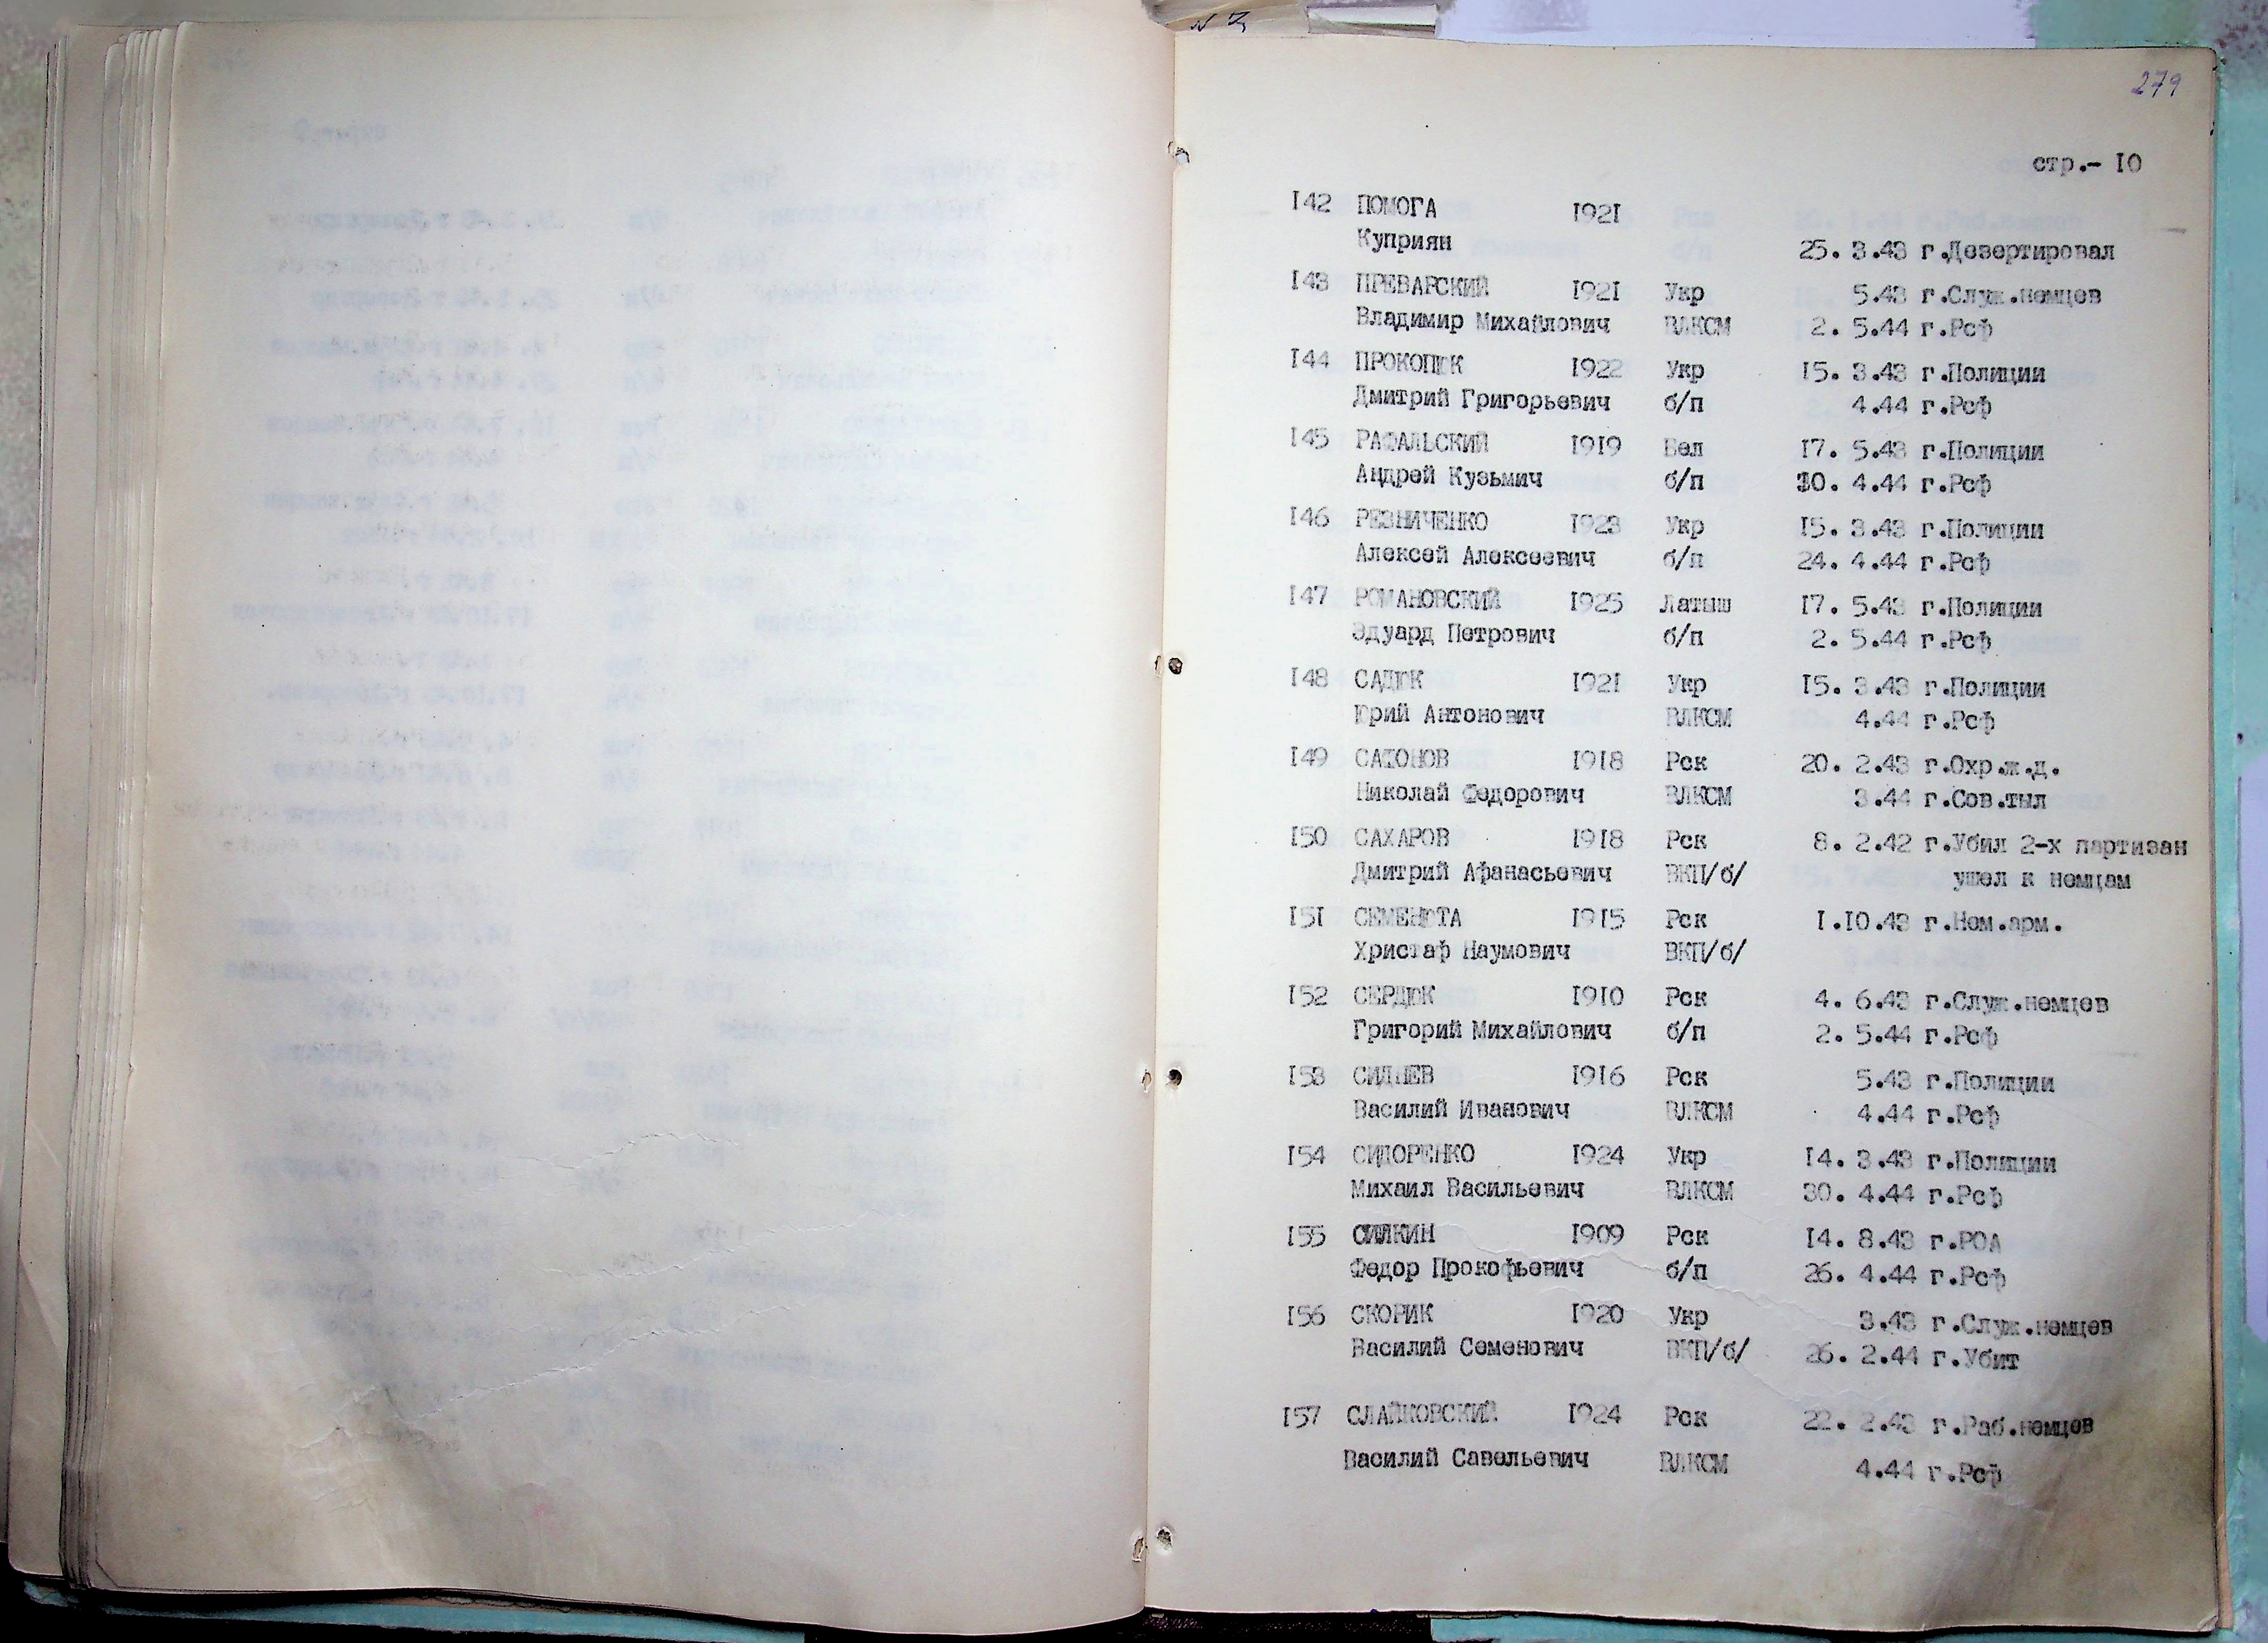 279
стр.- 10
142 ПОМОГА 1921
Куприян 25. 3.43 г.Дезертировал
143 ПРЕВАРСКИЙ 1921 Укр 5.43 г.Служ.немцев
Владимир Михайлович ВЛКСМ 2. 5.44 г.Рсф
144 ПРОКОПЮК 1922 Укр 15. 3.43 г.Полиции
Дмитрий Григорьевич б/п 4.44 г.Рсф
145 РАФАЛЬСКИЙ 1919 Бел 17. 5.43 г.Полиции
Андрей Кузьмич б/п 30. 4.44 г.Рсф
146 РЕЗНИЧЕНКО 1923 Укр 15. 3.43 г.Полиции
Алексей Алексеевич б/п 24. 4.44 г.Рсф
147 РОМАНОВСКИЙ 1925 Латыш 17. 5.43 г.Полиции
Эдуард Петрович б/п 2. 5.44 г.Рсф
148 САДЮК 1921 Укр 15. 3.43 г.Полиции
Юрий Антонович ВЛКСМ 4.44 г.Рсф
149 1918 Рск 20. 2.43 г.Охр.ж.д.
Николай Федорович ВЛКСМ 3.44 г.Сов.тыл
150 САХАРОВ 1918 Рск 8. 2.42 г.Убил 2-х партизан
Дмитрий Афанасьевич ВКП/б/ ушел к немцам
151 СЕМЕНЮТА 1915 Рск 1.10.43 г.Нем.арм.
Христаф Наумович ВКП/б/
152 СЕРДЮК 1910 Рск 4. 6.43 г.Служ.немцев
Григорий Михайлович б/п 2. 5.44 г.Рсф
153 СИДНЕВ 1916 Рск 5.43 г.Полиции
Василий Иванович ВЛКСМ 4.44 г.Рсф
154 СИДОРЕНКО 1924 Укр 14. 3.43 г.Полиции
Михаил Васильевич ВЛКСМ 30. 4.44 г.Рсф
155 СИЛКИН 1909 Рск 14. 8.43 г.РОА
Федор Прокофьевич б/п 26. 4.44 г.Рсф
156 СКОРИК 1920 Укр 3.43 г.Служ.немцев
Василий Семенович ВКП/б/ 26. 2.44 г.Убит
157 СЛАЙКОВСКИЙ 1924 Рск 22. 2.43 г.Раб.немцев
Василий Савельевич ВЛКСМ 4.44 г.Рсф